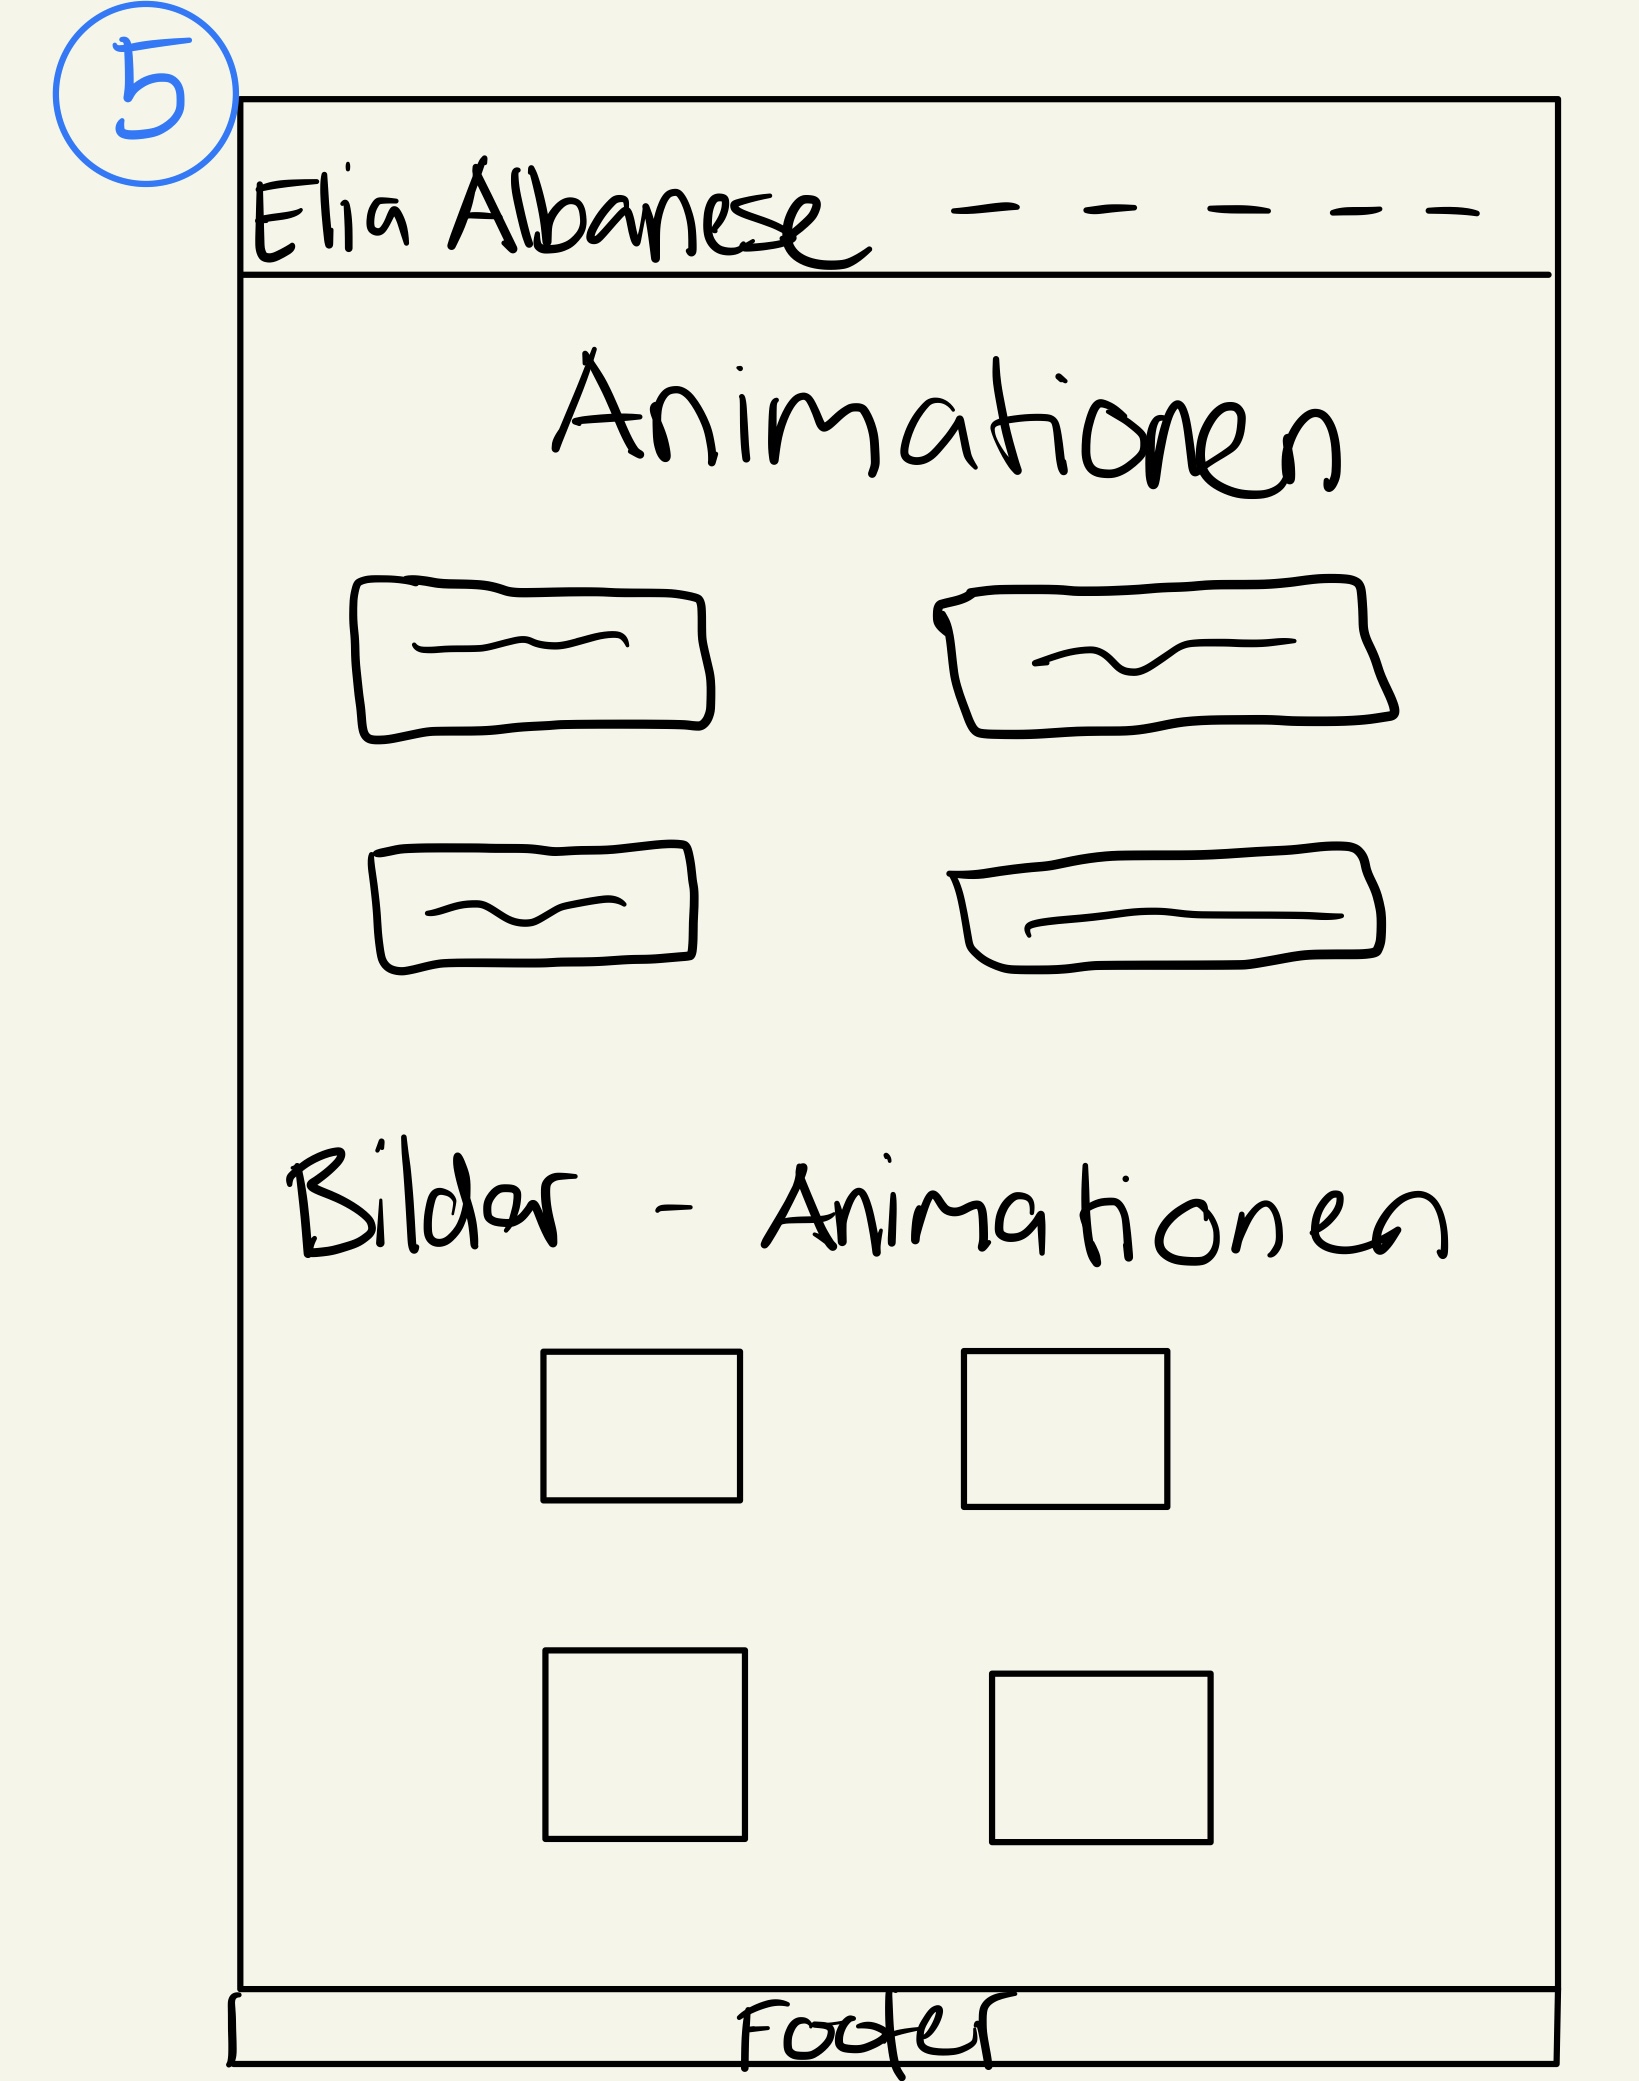 5
Elia Albanese
Animationen
Bilder - Animationen
Footer